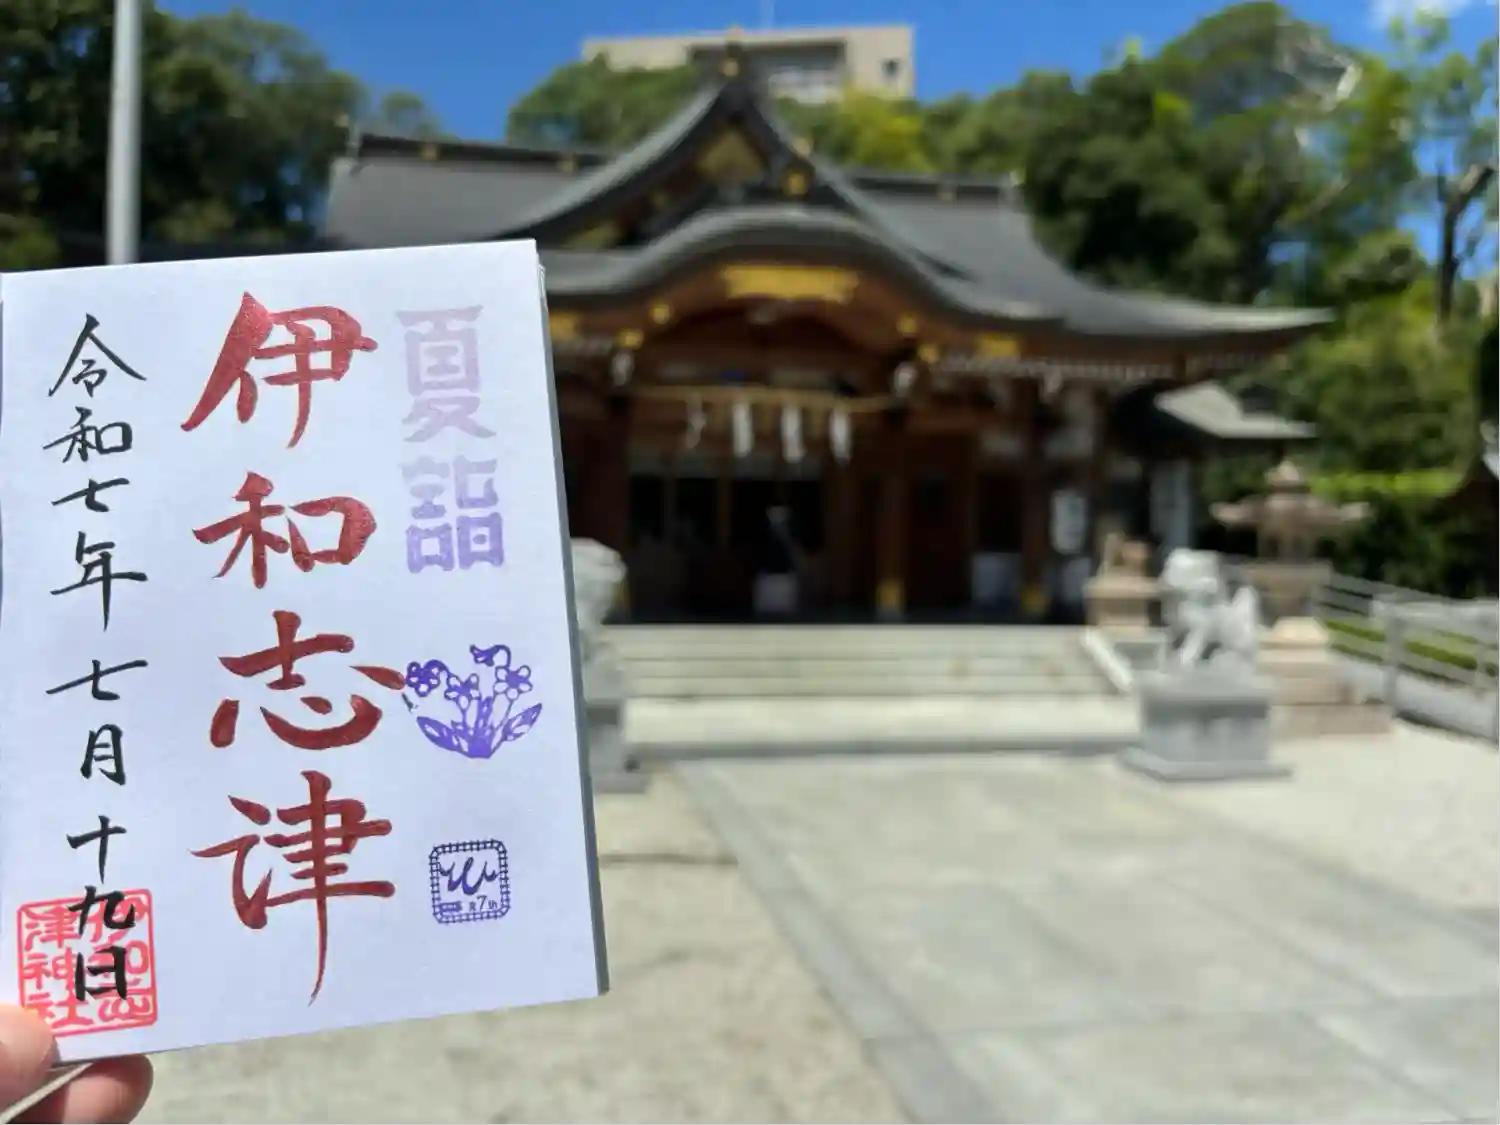 夏詣
7th
伊和志津
令和七年七月十九日
伊和志
津神社